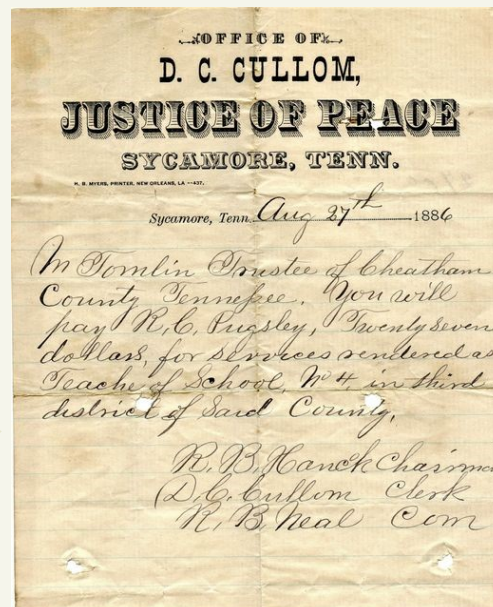 OFFICE OF
D. C. CULLOM,
JUSTICE OF PEACE
SYCAMORE, TENN.
H. B. MYERS, PRINTER, NEW ORLEANS, LA --437.
Sycamore, Tenn. Aug 27th 1886
M Tomlin Trustee of Cheatham
County Tennessee. You will
pay R. C. Pugsley, Twenty seven
dollars, for services rendered as
Teache of School, No 4 in third
district of Said County,
R. B. Hanck Chairma
D. C. Cullom Clerk
R. B. Neal Com